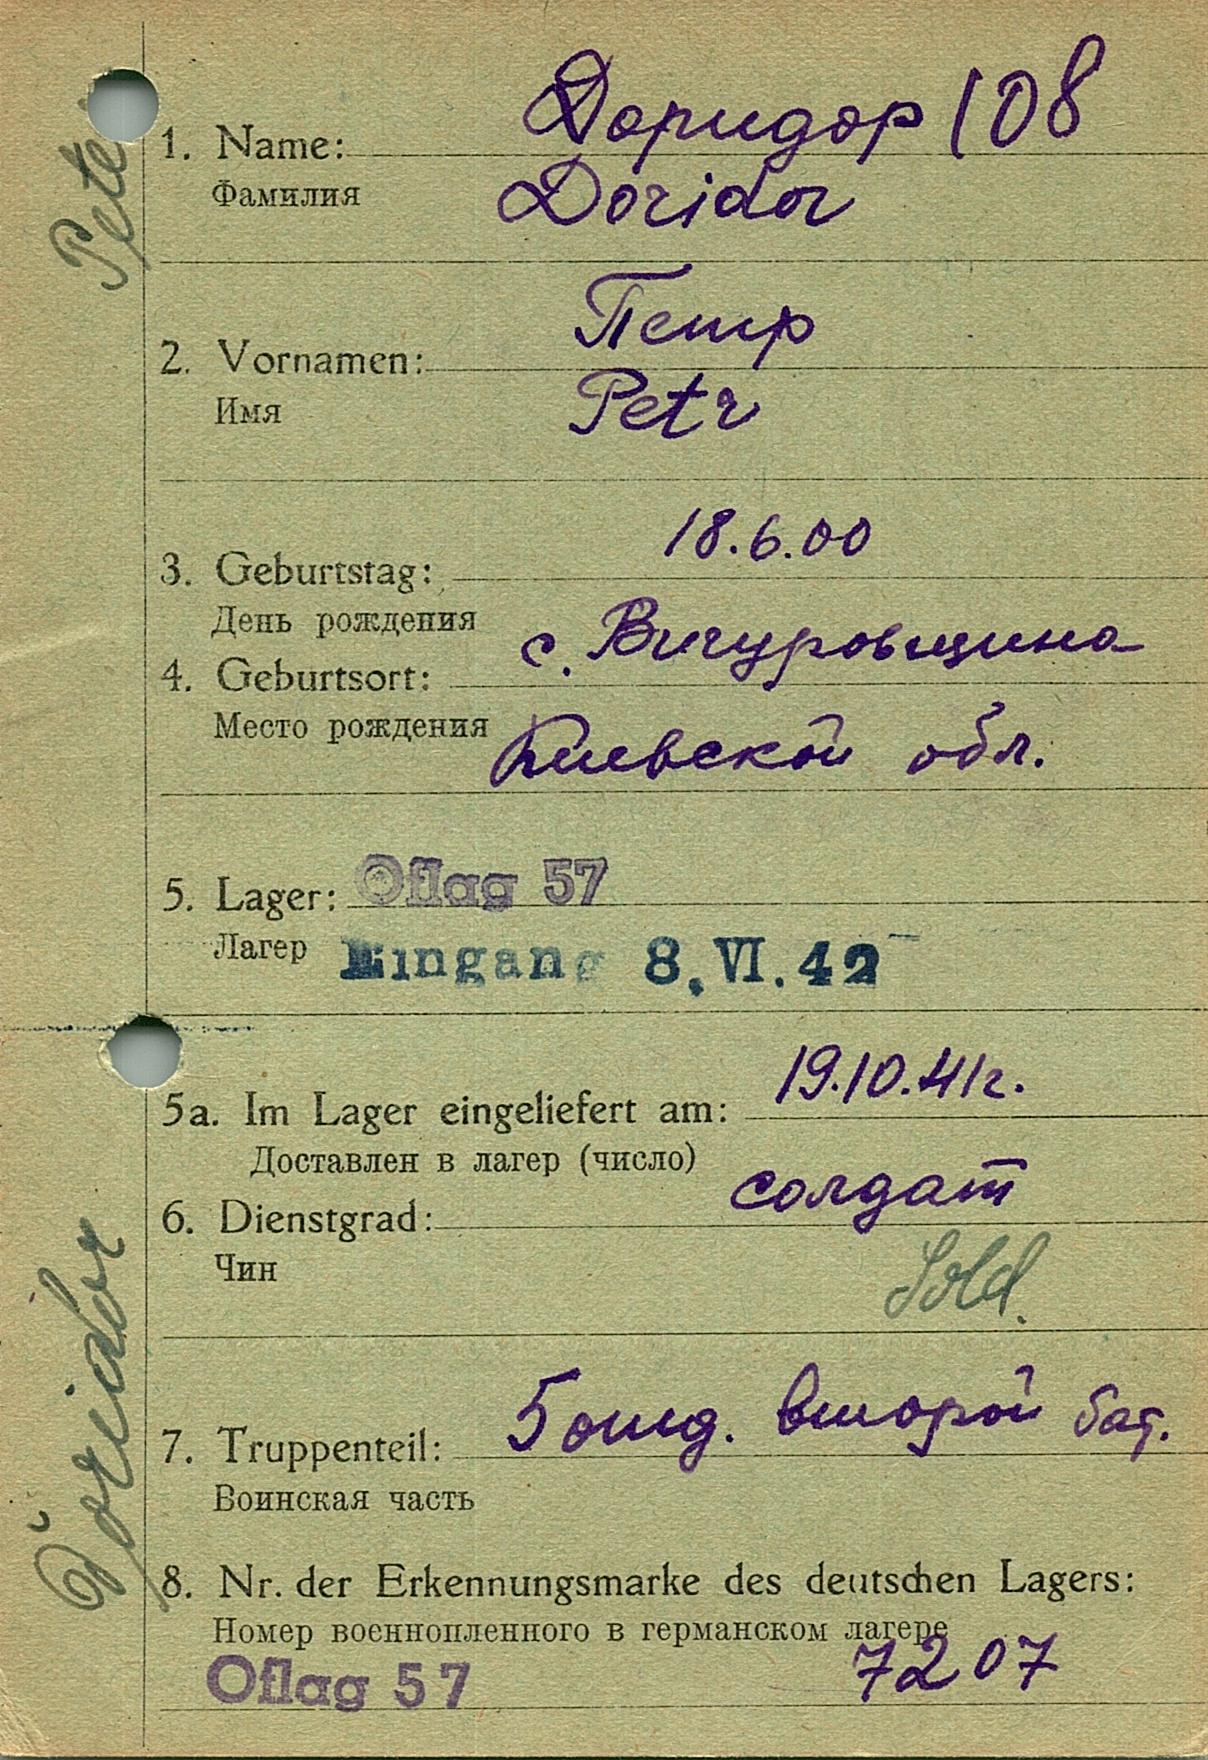 Доридор 108
1. Name:
Фамилия
Doridor
Петр
2. Vornamen:
Имя
Petr
18.6.00
3. Geburtstag:
День рождения
с. Вигуровщина
4. Geburtsort:
Место рождения
Киевской обл.
5. Lager: Oflag 57
Лагер Eingang 8.VI.42
19.10.41г.
5a. Im Lager eingeliefert am:
Доставлен в лагер (число)
солдат
6. Dienstgrad:
Чин
Sold.
5 отд. второй бат.
7. Truppenteil:
Воинская часть
8. Nr. der Erkennungsmarke des deutschen Lagers:
Номер военнопленного в германском лагере
Oflag 57 7207
Doridor
Peter